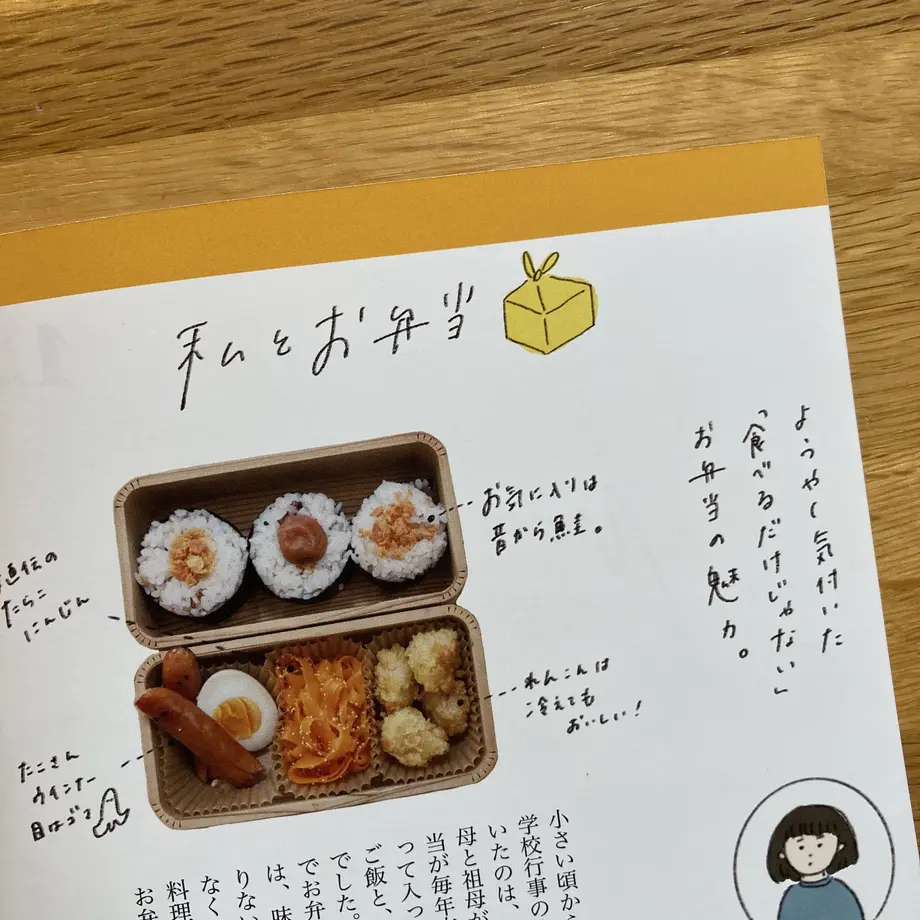 私とお弁当
ようやく気付いた
「食べるだけじゃない」
お弁当の魅力。
お気に入りは
昔から鮭。
直伝の
たらこ
にんじん
れんこんは
冷えても
おいしい!
たこさん
ウインナー
目はゴマ
小さい頃から
学校行事の
いたのは、
母と祖母が
当が毎年
って入っ
ご飯と、
でした。
でお弁
は、味
りない
なく
料理
お弁